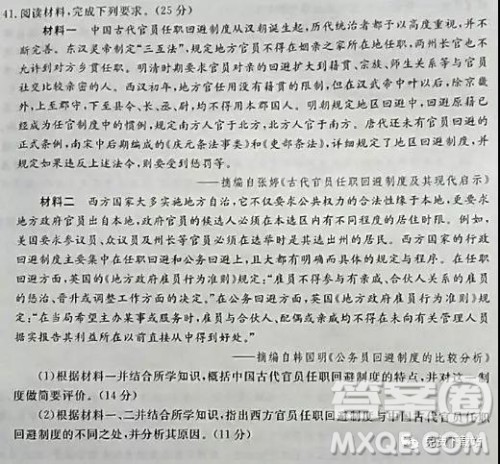 41. 阅读材料,完成下列要求。(25分)
材料一 中国古代官员任职回避制度从汉朝诞生起,历代统治者都予以高度重视,并不
断完善。东汉灵帝制定“三互法”,规定地方官员不得在姻亲之家所在地任职,两州长官也不
允许到对方乡贯任职。明清时期要求官员对亲的回避扩大到籍贯、宗族、师生关系等与官员
社交比较亲密的人。西汉初年,地方官任用没有籍贯的限制,但在汉武帝中叶以后,除京畿
外,上至郡守,下至县令、长、丞、尉,均不得用本郡国人。明朝规定地区回避中,回避原籍已
经成为任官制度中的惯例,规定南方人官于北方,北方人官于南方。唐代还未有官员回避的
正式条例,南宋中后期编成的《庆元条法事类》和《吏部条法》,详细规定了地区回避制度,并
规定如果违反上述法令,则要受到惩罚等。
——摘编自张婷《古代官员任职回避制度及其现代启示》
材料二 西方国家大多实施地方自治,它不仅要求公共权力的合法性缘于本地,更要求
地方政府官员出自本地,政府官员的候选人必须在本选区内有不同程度的居住时限。例如,
美国要求参议员、众议员及州长等官员必须在当选时是其选出州的居民。西方国家的行政
回避制度主要集中在任职回避和公务回避上,且大都有明确而具体的规定与程序。在任职
回避方面,英国的《地方政府雇员行为准则》规定:“雇员不得参与有亲戚、合伙人关系的雇员
的惩治、晋升或调整工作方面的决定。”在公务回避方面,英国《地方政府雇员行为准则》规
定:“在当局希望主办某事或服务时,雇员与合伙人、配偶或亲戚均不得在未向有关管理人员
据实报告其利益所在以前直接从中得到好处。”
——摘编自韩国明《公务员回避制度的比较分析》
(1)根据材料一并结合所学知识,概括中国古代官员任职回避制度的特点,并对这一制
度做简要评价。(14分)
(2)根据材料一、二并结合所学知识,指出西方官员任职回避制度与中国古代官员任职
回避制度的不同之处,并分析其原因。(11分)
答案圈